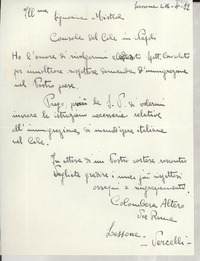 Lessona li 6-4-52
Ill.ma Signorina Mistral
Console del Cile in Napoli
Ho l'onore di rivolgermi a Spett. Consolato
per inoltrare rispettosa domanda d'immigrazione
nel Vostro paese.
Prego, perciò la S. V. di volermi
inviare le istruzioni necessarie relative
all'immigrazione, di mandopera italiana
nel Cile.
In attesa di un Vostro cortese riscontro
Vogliate gradire i miei più rispettosi
ossequi e ringraziamenti.
Colombera Altero
Via Roma
Lessona - Vercelli -